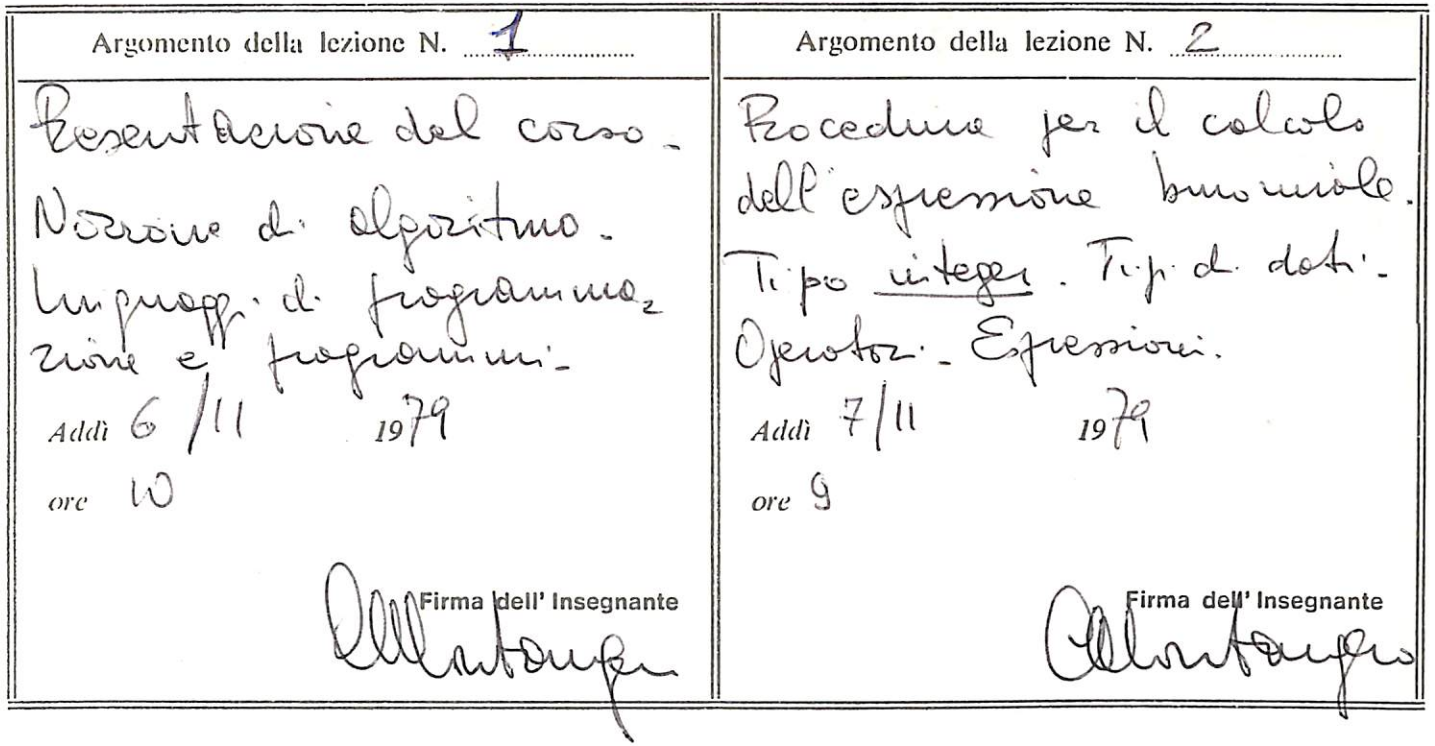 Argomento della lezione N. 1
Presentazione del corso -
Nozione di algoritmo -
Linguaggi di programma-
zione e programmi -
Addì 6/11 1979
ore 10
Firma dell' Insegnante
Argomento della lezione N. 2
Procedura per il calcolo
dell'espressione binomiale.
Tipo integer. Tipi di dati -
Operatori - Espressioni.
Addì 7/11 1979
ore 9
Firma dell' Insegnante
Montangero